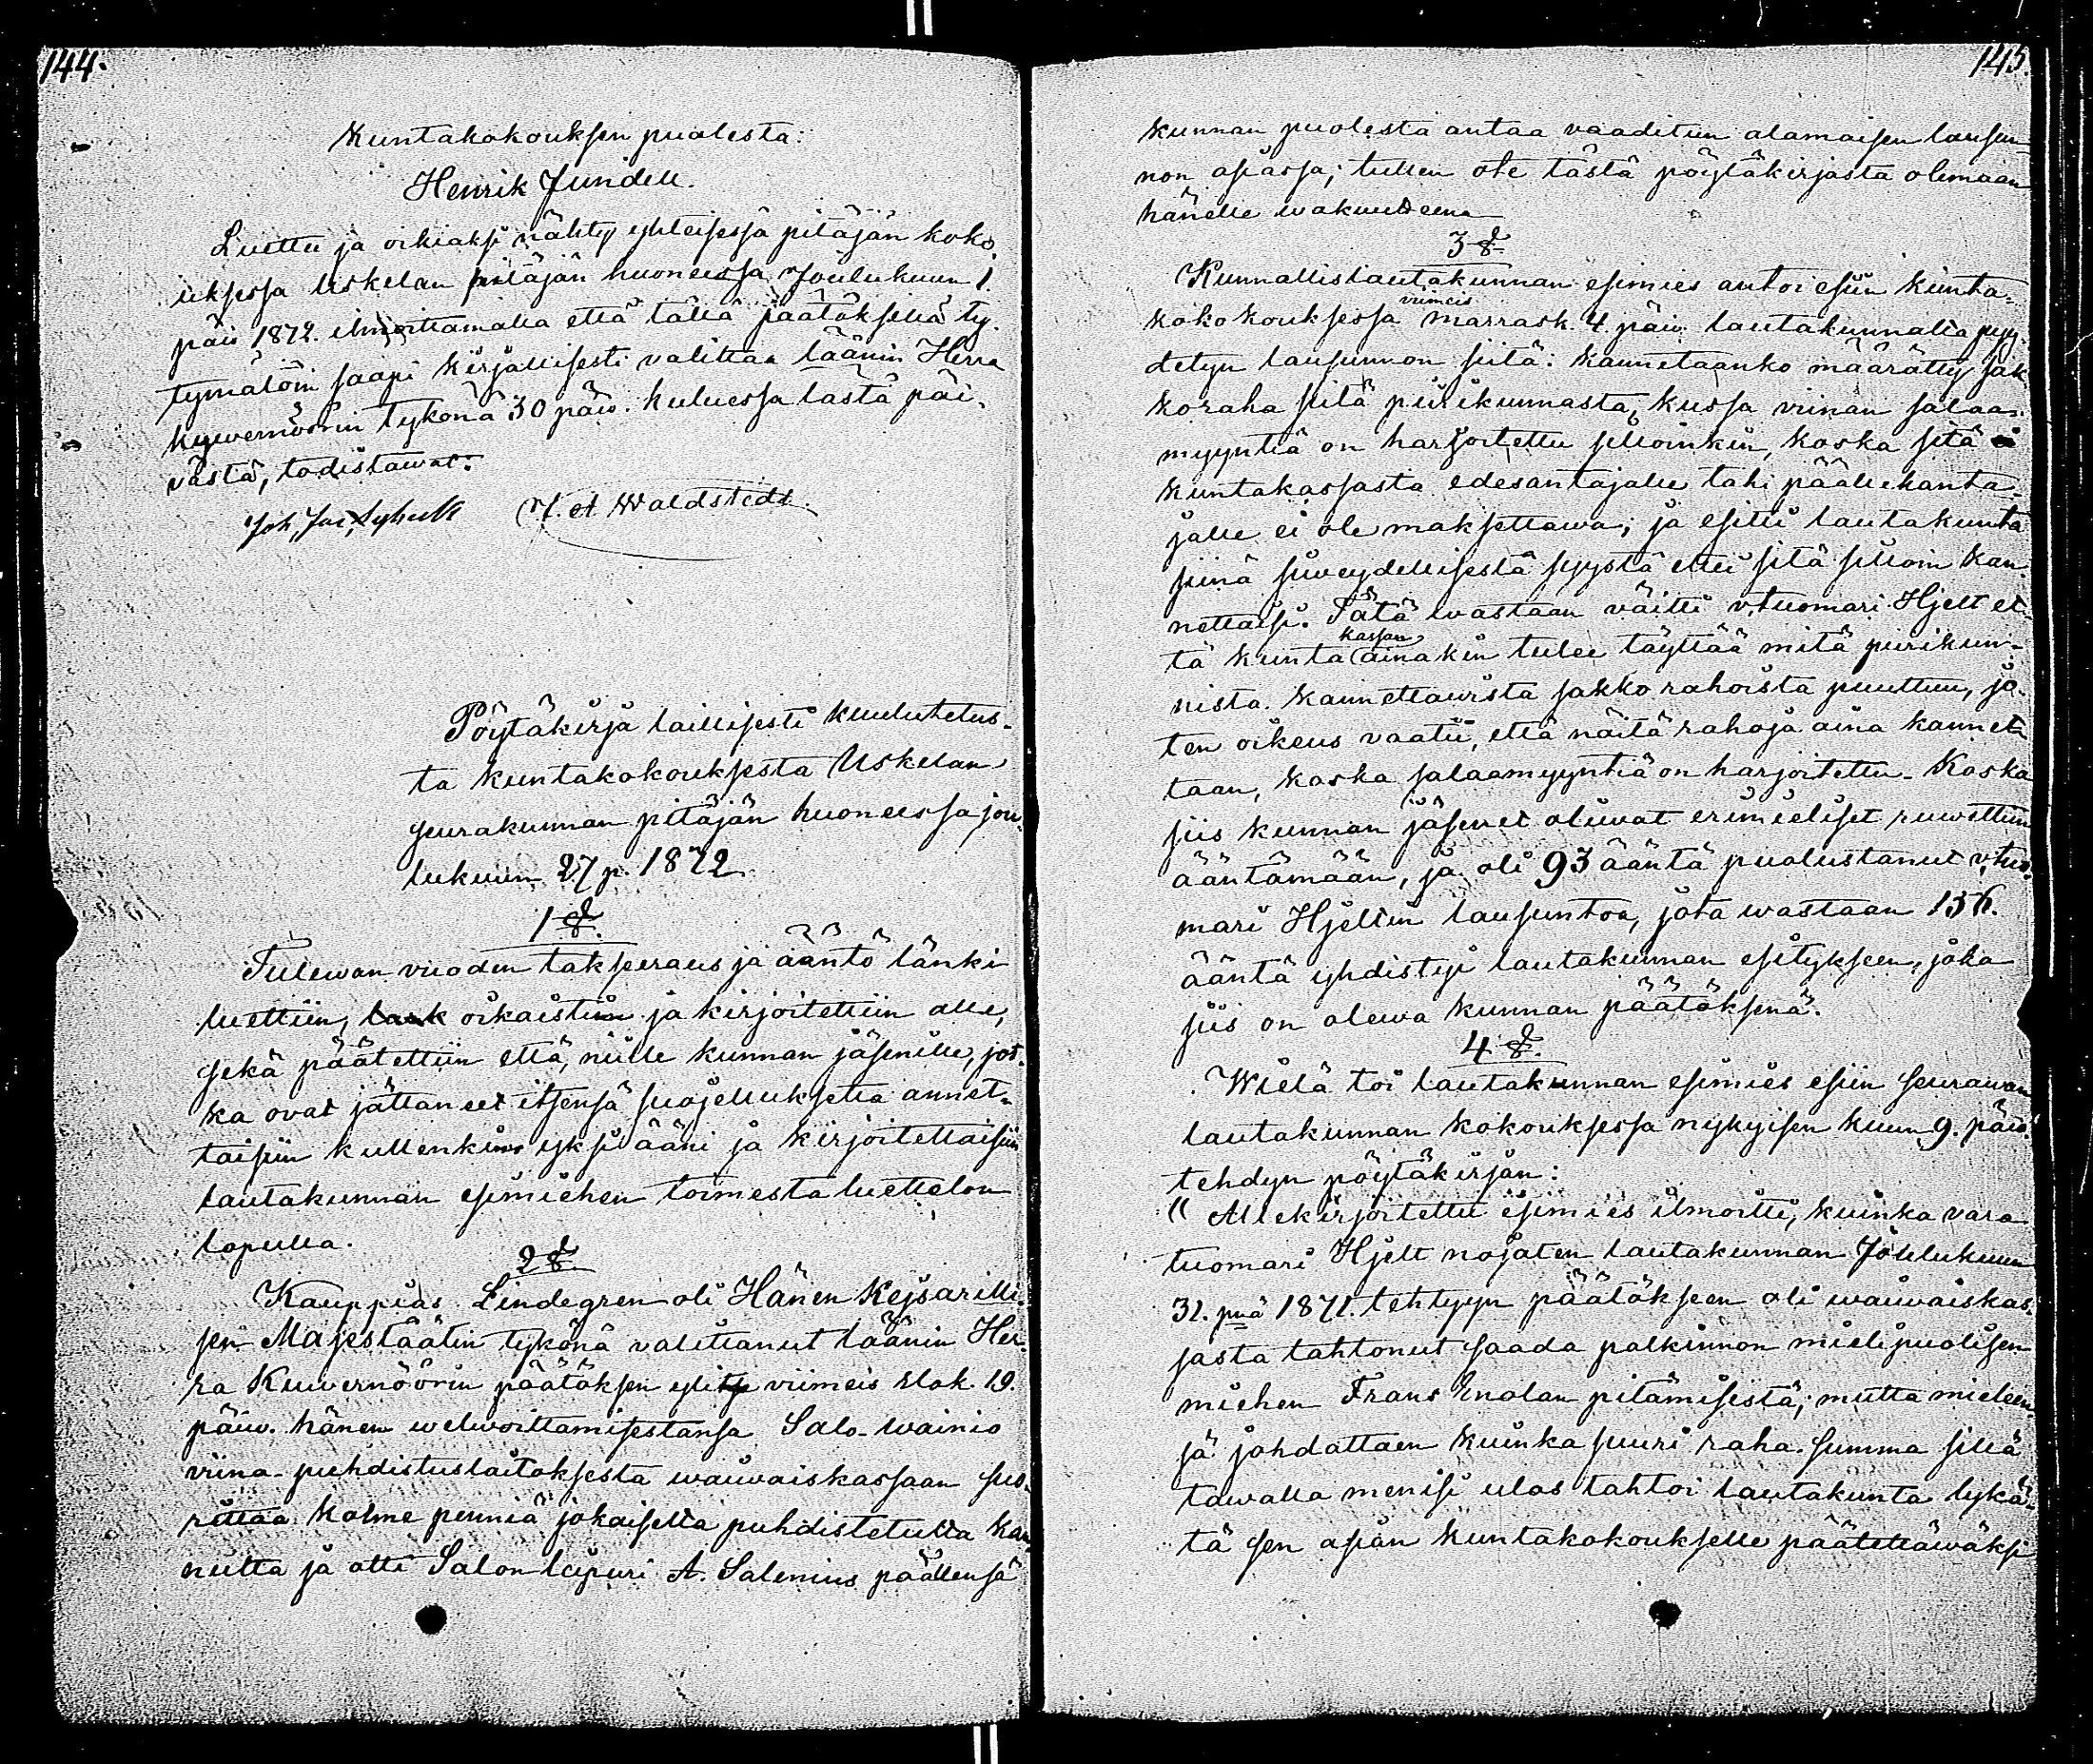 144.
Kuntakokouksen puolesta:
Henrik Junidell.
Luettu ja oikiaksi nähty yhteisessä pitäjän koko,
uksessa Uskelan pitäjän huoneessa Joulukuun 1
päiv 1872. ilmoittamalla että tällä päätöksellä ty.
tymätöin saapi kirjallisesti valittaa läänin Herra
kuvernöörin tykönä 30 päiv. kuluessa tästä päi,
västä, todistawat:
Joh, Jac,
Pöytäkirja laillisesti kuulutetus-
ta kuntakokouksesta Uskelan
seurakunnan pitäjän huoneessa jou-
lukuun 27 p. 1872
1 §.
Tulewan vuoden takseraus ja ääntö länki
luettiin, oikaistiin ja kirjoitettiin alle,
sekä päätettiin että, niille kunnan jäsenille, jot-
ka ovat jättäneet itsensä suojelluksetta annet-
taisiin kullenkin yksi ääni ja kirjoitettaisiin
lautakunnan esimiehen toimesta luettelon
lopulla.
2 §.
Kauppias Lindegren oli Hänen Keisarilli
sen Majestäätin tykönä valittanut läänin Her-
ra Kuvernöörin päätöksen ylitse viimeis elok. 19.
päiw. hänen welwoittamisestansa Salo-wainio
viina-puhdistuslaitoksesta waiwaiskassaan suo-
rittaa kolme penniä jokaiselta puhdistetulta kan-
nulta ja otti Salon leipuri A. Salenius päällensä
145.
kunnan puolesta antaa vaaditun alamaisen lausun-
non asiassa; tullen ote tästä pöytäkirjasta olemaan
hänelle wakuudeena
3 §
Kunnallislautakunnan esimies antoi esiin kunta-
kokokouksessa viimeis marrask. 4. päiw. lautakunnalta pyy
detyn lausunnon siitä: kannetaanko määrätty sak
koraha siitä piirikunnasta, kussa viinan salaa-
myyntiä on harjoitettu silloinkin, koska sitä
kuntakassasta edesantajalle tahi päällekanta-
jalle ei ole maksettawa; ja esitti lautakunta
siinä siiveydellisestä syystä ettei sitä silloin kan-
nettaisi. Tätä wastaan väitti v.tuomari Hjelt et-
tä kunta kassan ainakin tulee täyttää mitä piirikun-
nista kannettawista sakko rahoista puuttuu, jo-
ten oikeus vaatii, että näitä rahoja aina kannet-
taan, koska salaamyyntiä on harjoitettu. Koska
siis kunnan jäsenet oliwat erimieliset ruwettiin
ääntämään, ja oli 93 ääntä puolustanut v,tuo-
mari Hjeltin lausuntoa, jota wastaan 136.
ääntä yhdistyi lautakunnan esitykseen, joka
siis on olewa kunnan päätöksenä.
4 §.
Wielä toi lautakunnan esimies esiin seurawan
lautakunnan kokouksessa nykyisen kuun 9. päiw.
tehdyn pöytäkirjan:
"Allekirjoitettu esimies ilmoitti, kuinka vara
tuomari Hjelt nojaten lautakunnan Joulukuun
31. pnä 1871. tehtyyn päätökseen oli waiwaiskas-
sasta tahtonut saada palkinnon mielipuolisen
miehen Frans Enolan pitämisestä; mutta mieleen-
sä johdattaen kuinka suuri raha-summa sillä
tawalla menisi ulos tahtoi lautakunta lykä-
tä sen asian kuntakokoukselle päätettäwäksi